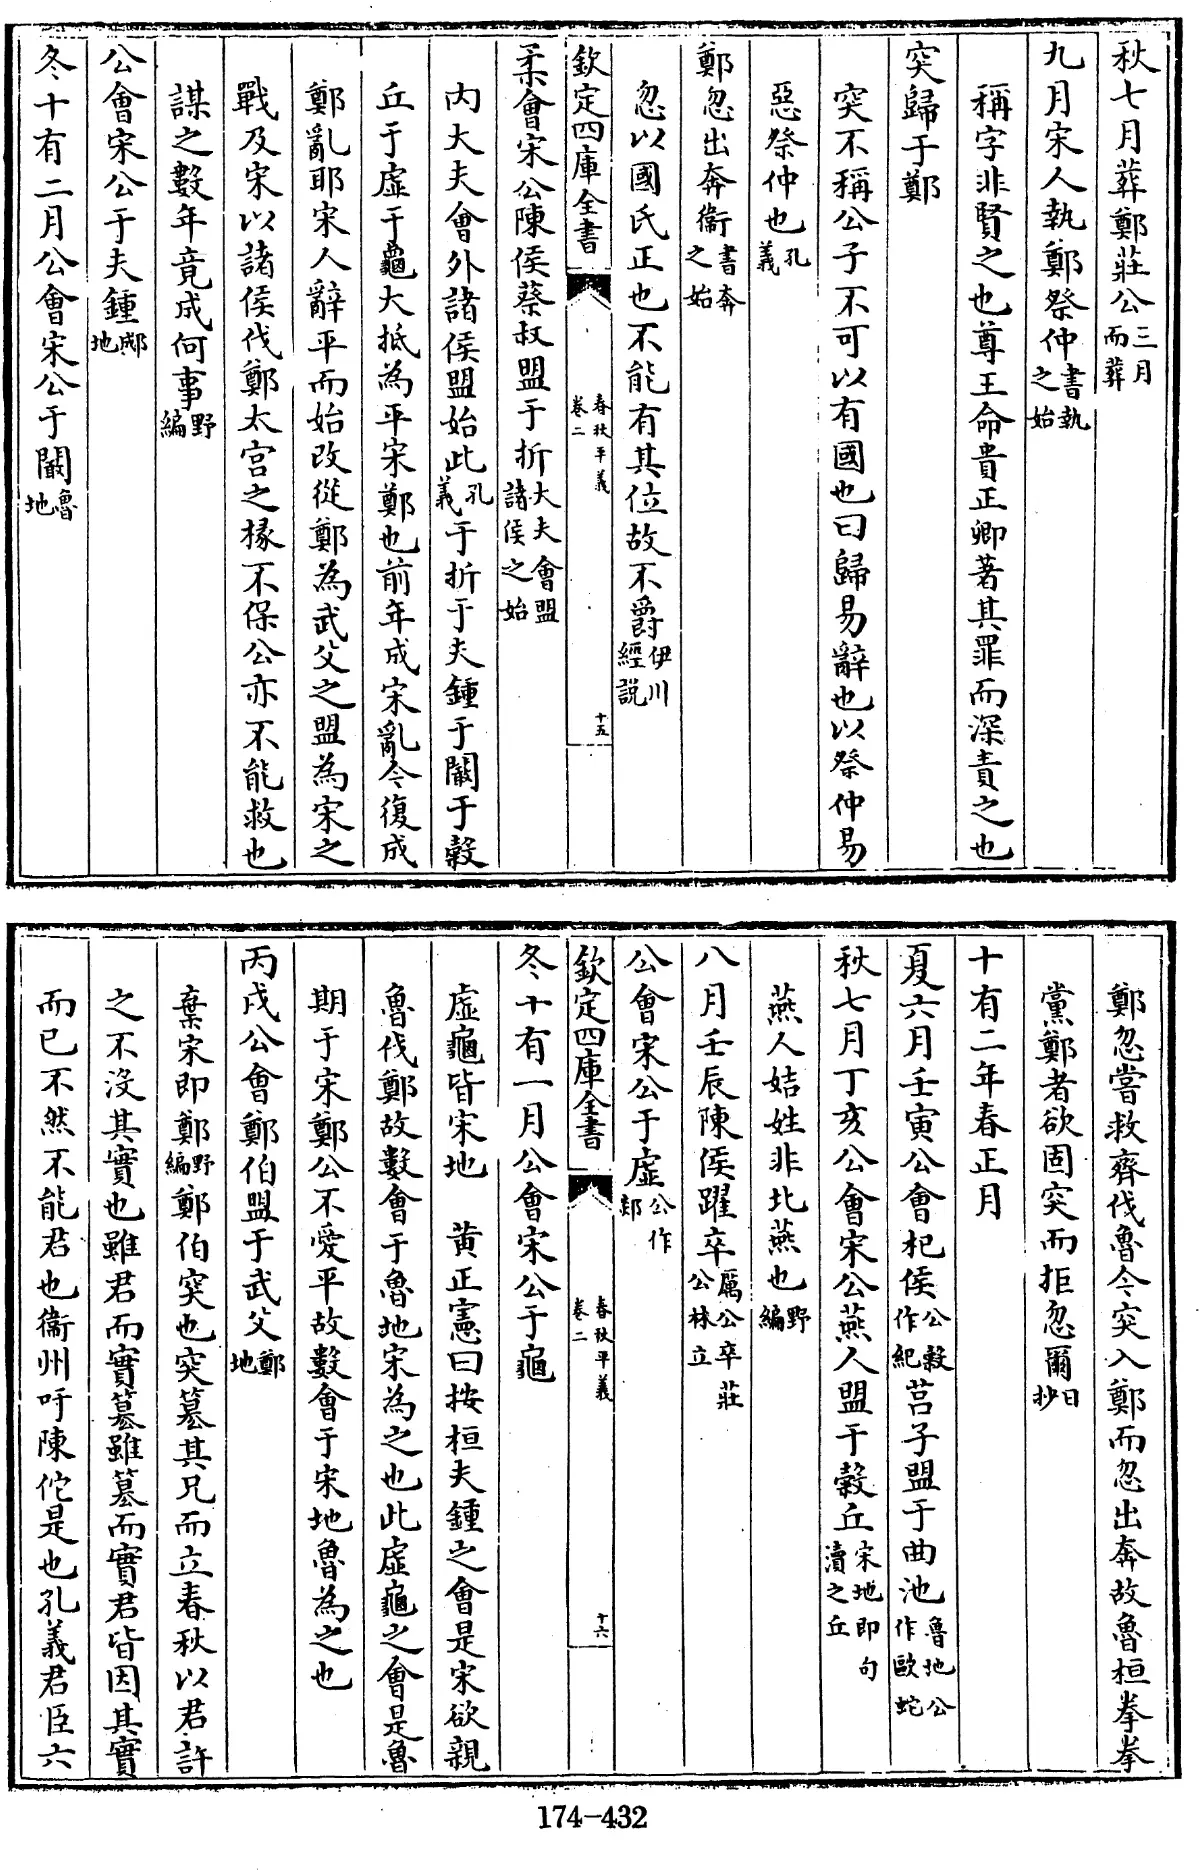 秋七月葬鄭莊公三月而葬
九月宋人執鄭祭仲書執之始
稱字非賢之也尊王命貴正卿著其罪而深責之也
突歸于鄭
突不稱公子不可以有國也曰歸易辭也以祭仲易
惡祭仲也孔義
鄭忽出奔衞書奔之始
忽以國氏正也不能有其位故不爵伊川經說
欽定四庫全書
春秋平義
卷二
十五
柔會宋公陳侯蔡叔盟于折大夫會盟諸侯之始
内大夫會外諸侯盟始此孔義于折于夫鍾于闞于穀
丘于虛于龜大抵為平宋鄭也前年成宋亂今復成
鄭亂耶宋人辭平而始改從鄭為武父之盟為宋之
戰及宋以諸侯伐鄭太宮之椽不保公亦不能救也
謀之數年竟成何事野編
公會宋公于夫鍾郕地
冬十有二月公會宋公于闞魯地
鄭忽嘗救齊伐魯今突入鄭而忽出奔故魯桓拳拳
黨鄭者欲固突而拒忽爾日抄
十有二年春正月
夏六月壬寅公會杞侯公穀作紀莒子盟于曲池魯地公作歐蛇
秋七月丁亥公會宋公燕人盟于穀丘宋地即句瀆之丘
燕人姞姓非北燕也野編
八月壬辰陳侯躍卒厲公卒莊公林立
公會宋公于虛公作郪
欽定四庫全書
春秋平義
卷二
十六
冬十有一月公會宋公于龜
虛龜皆宋地　黄正憲曰按桓夫鍾之會是宋欲親
魯伐鄭故數會于魯地宋為之也此虛龜之會是魯
期于宋鄭公不愛平故數會于宋地魯為之也
丙戌公會鄭伯盟于武父鄭地
棄宋即鄭野編鄭伯突也突篡其兄而立春秋以君許
之不沒其實也雖君而實篡雖篡而實君皆因其實
而已不然不能君也衞州吁陳佗是也孔義君臣六
174-432